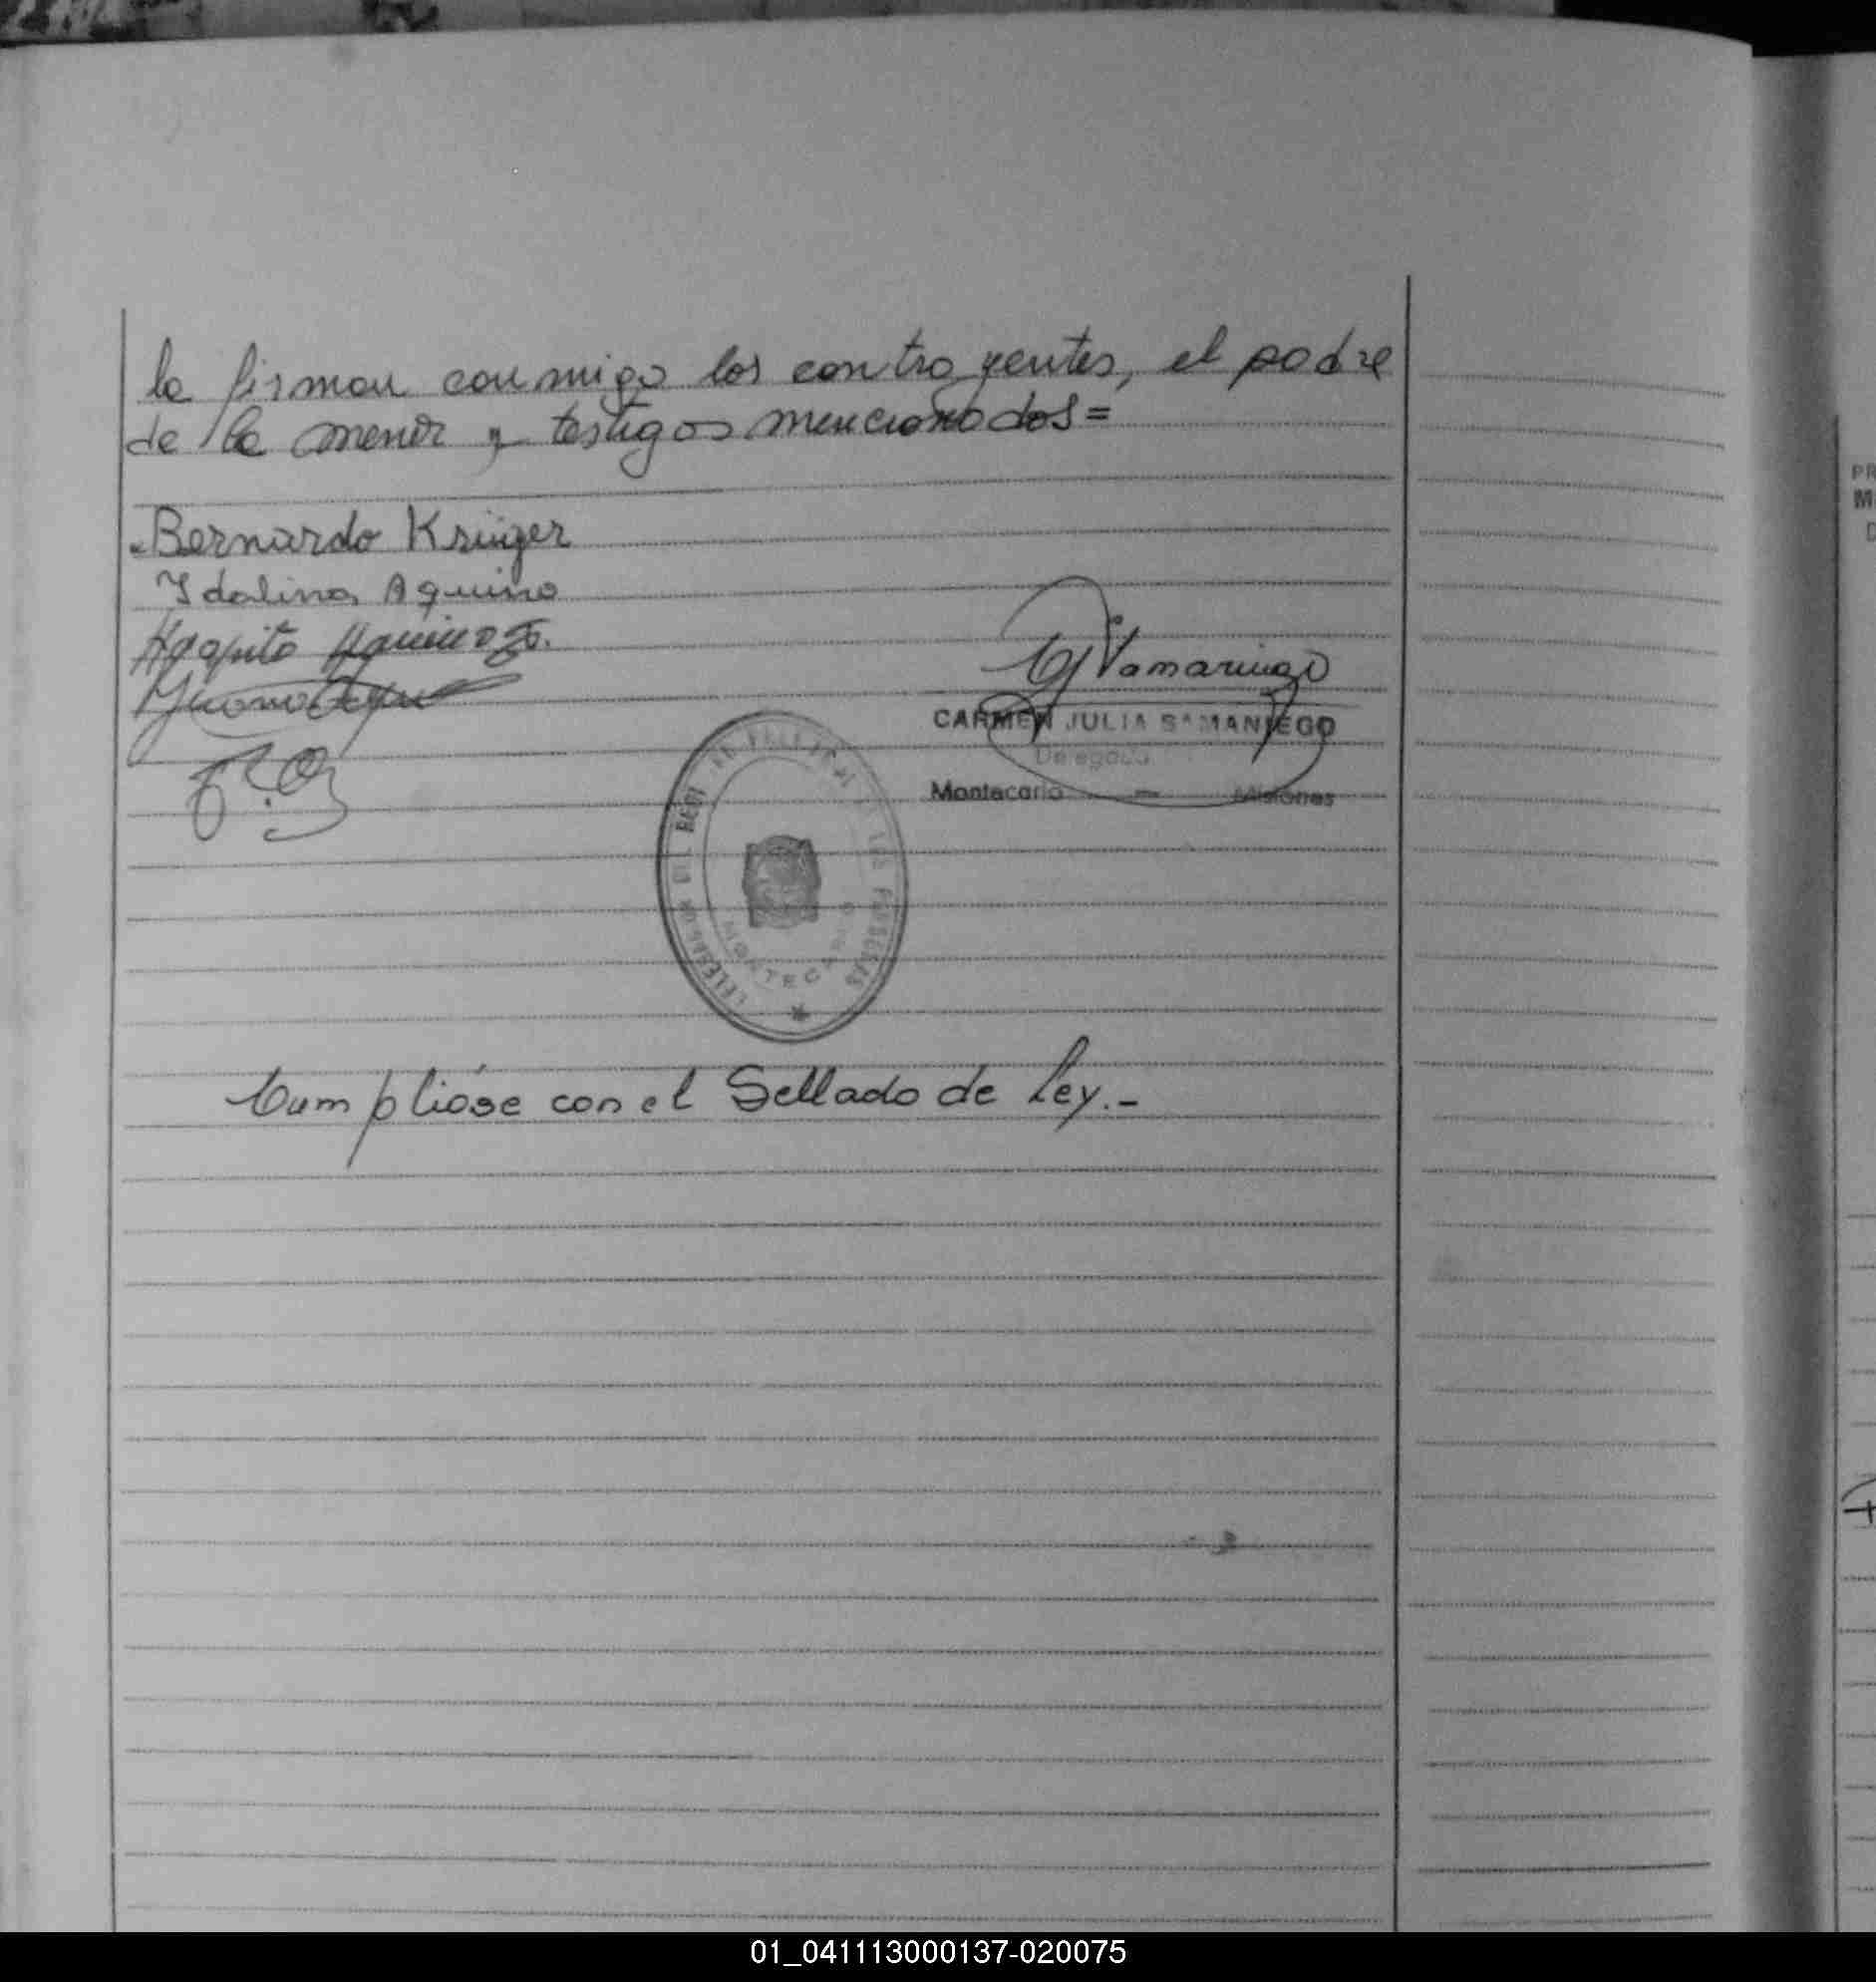 la firman conmigo los contrayentes, el padre
de la menor y testigos mencionados=
Bernardo Krüger
Idalina Aquino
Agapito Aquino
CARMEN JULIA SAMANIEGO
Delegada
Montecarlo — Misiones
DELEGACION DEL REGI
LAS PERSONAS
MONTECARLO
Cumplióse con el Sellado de Ley.-
PR
M
D
01_041113000137-020075